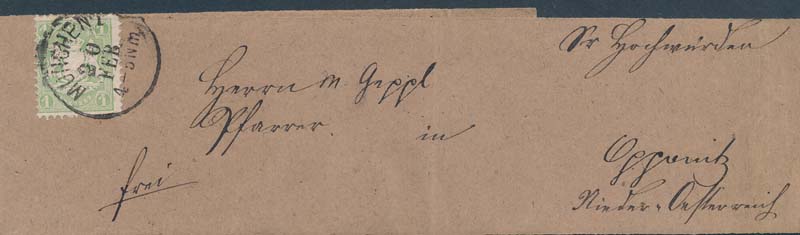 Sr Hochwürden
Herrn M. Geppl
Pfarrer in
Opponitz
Nieder-Oesterreich
frei
MÜNCHEN I
20
FEB
4-5 Nm.
1
1